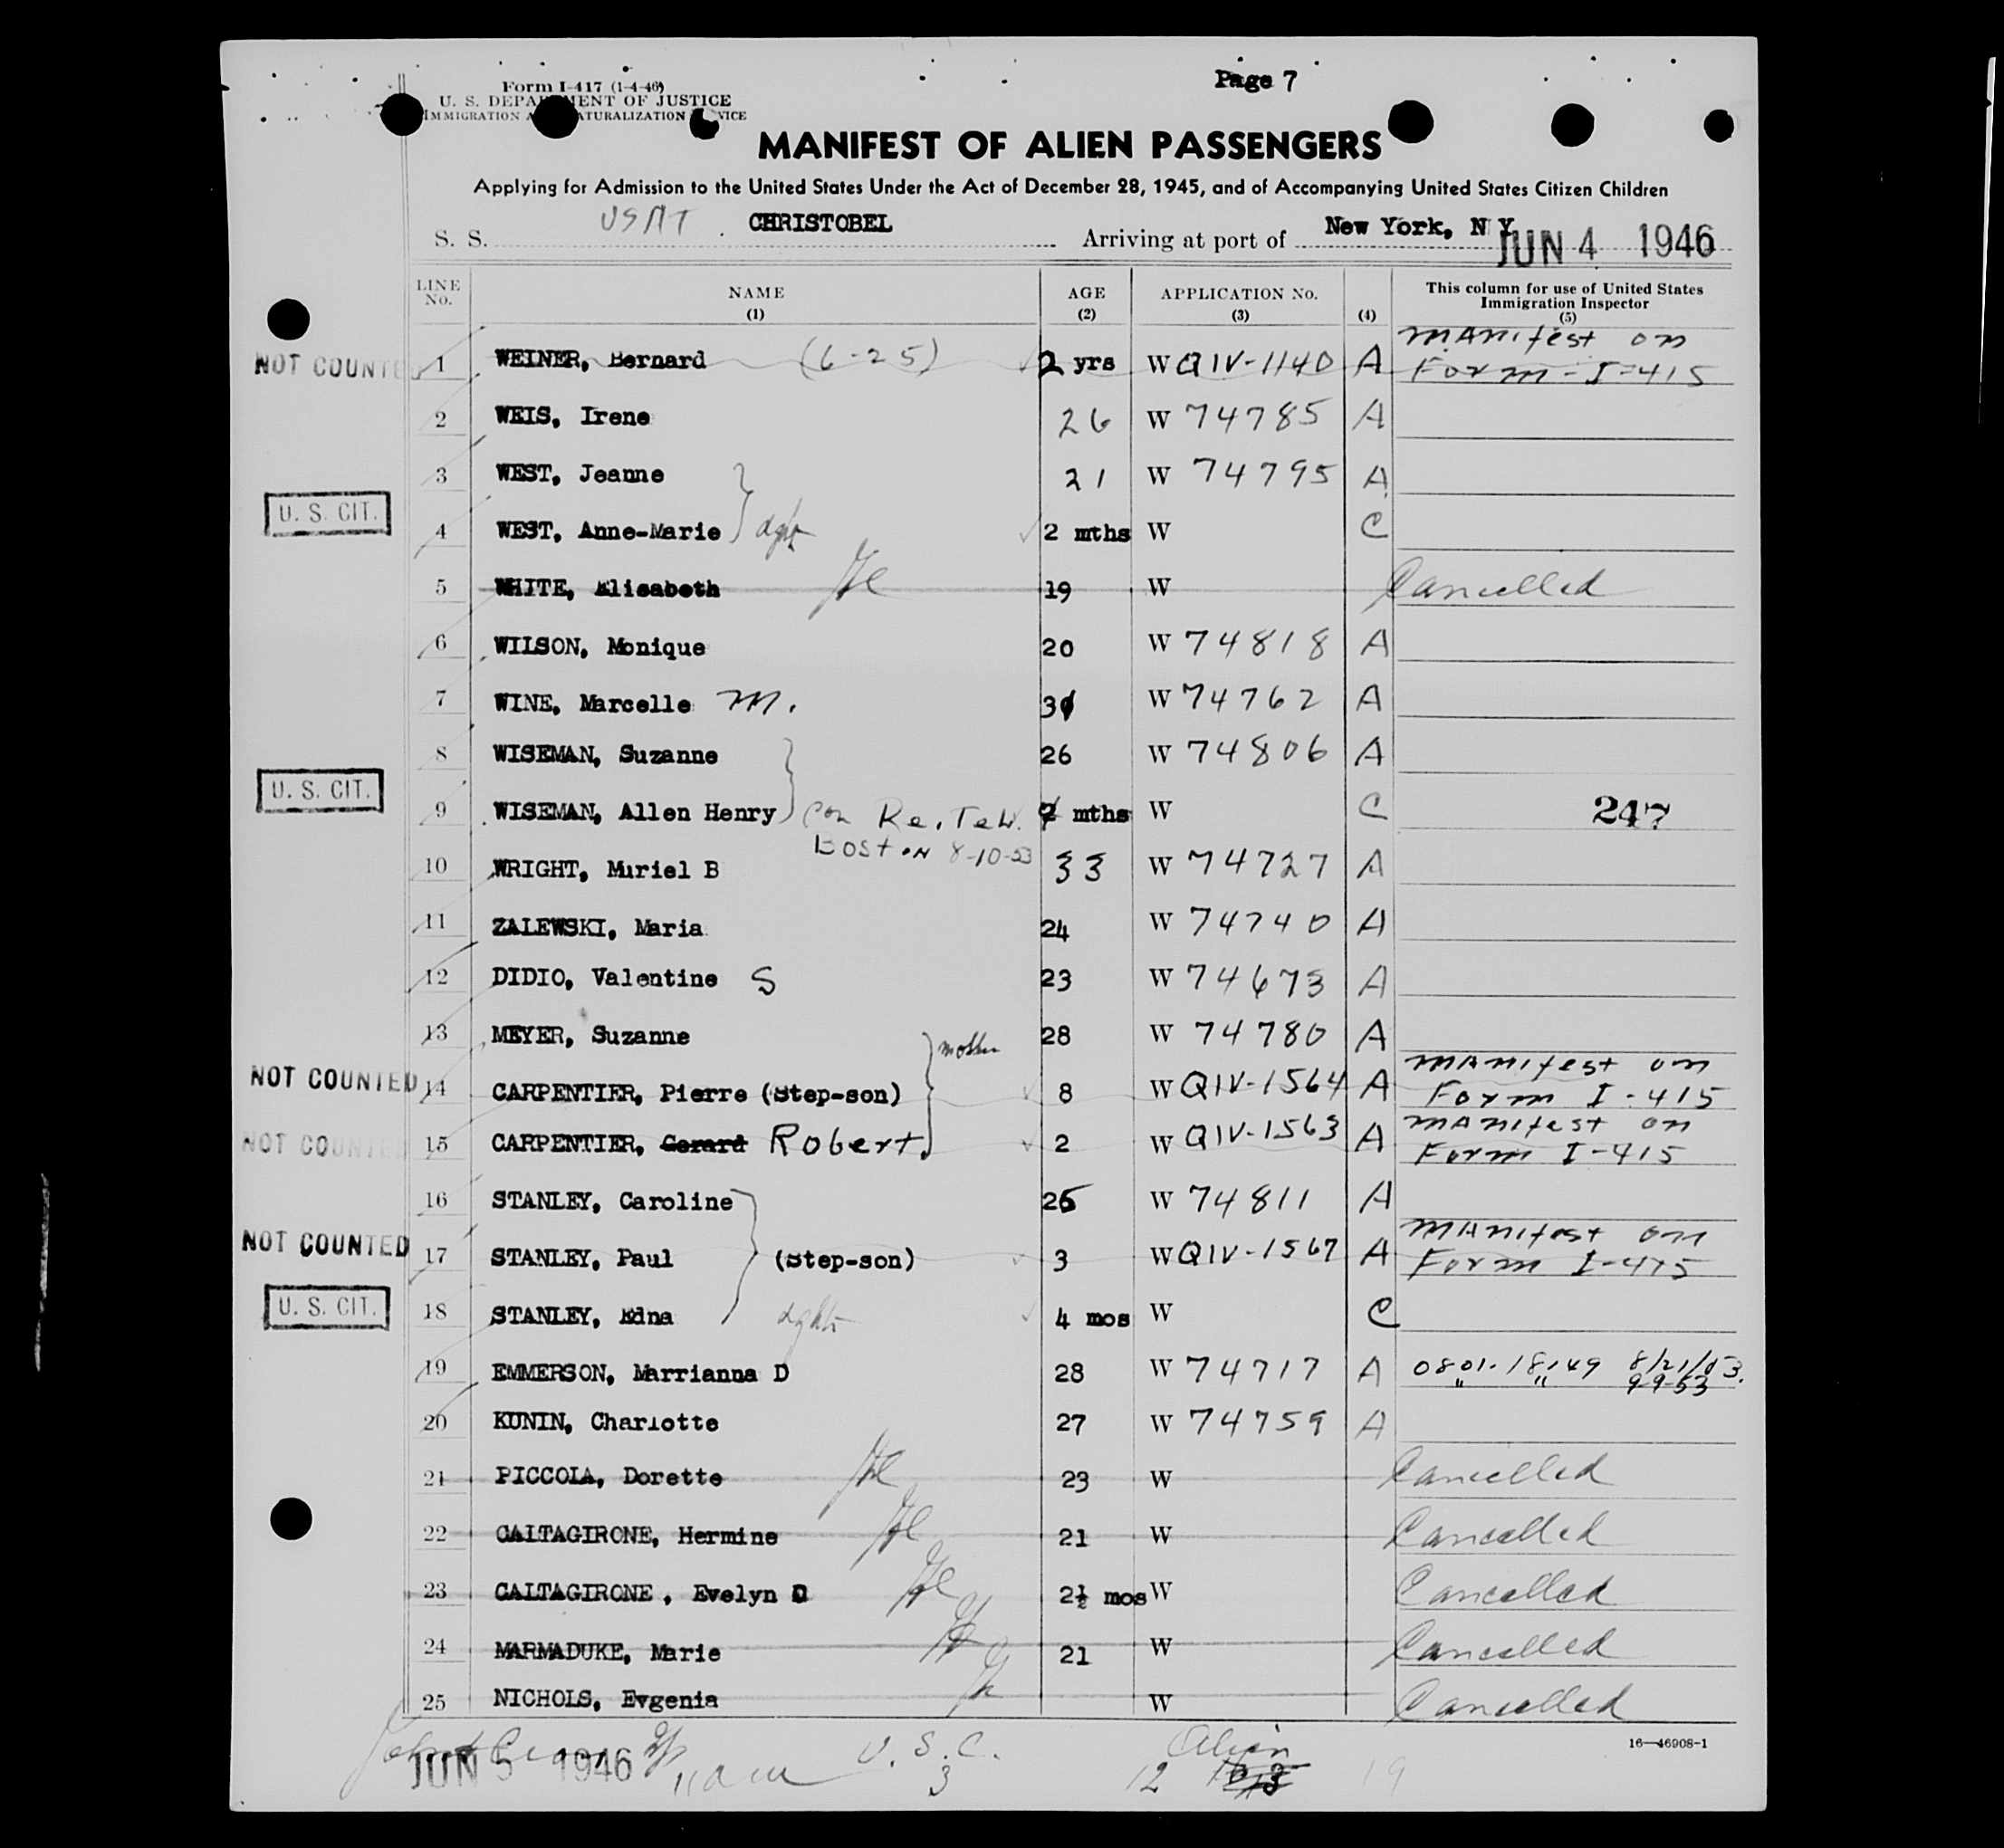 Page 7
Form I-417 (1-4-46)
U. S. DEPARTMENT OF JUSTICE
IMMIGRATION NATURALIZATION
MANIFEST OF ALIEN PASSENGERS
Applying for Admission to the United States Under the Act of December 28, 1945, and of Accompanying United States Citizen Children
S. S. USAT CHRISTOBEL Arriving at port of New York, N Y JUN 4 1946
LINE No. NAME (1) AGE (2) APPLICATION No. (3) (4) This column for use of United States Immigration Inspector (5)
NOT COUNTED 1 WEINER, Bernard (6-25) 2 yrs W QIV-1140 A Manifest on Form-I-415
2 WEIS, Irene 26 W 74785 A
3 WEST, Jeanne 21 W 74795 A
U. S. CIT. 4 WEST, Anne-Marie dght 2 mths W C
5 WHITE, Elisabeth 19 W Cancelled
6 WILSON, Monique 20 W 74818 A
7 WINE, Marcelle M. 30 W 74762 A
8 WISEMAN, Suzanne 26 W 74806 A
U. S. CIT. 9 WISEMAN, Allen Henry mths W C 247
Boston 8-10-53
10 WRIGHT, Muriel B 33 W 74727 A
11 ZALEWSKI, Maria 24 W 74740 A
12 DIDIO, Valentine S 23 W 74673 A
13 MEYER, Suzanne mother 28 W 74780 A
NOT COUNTED 14 CARPENTIER, Pierre (Step-son) 8 W QIV-1564 A Manifest on Form I-415
NOT COUNTED 15 CARPENTIER, Gerard Robert 2 W QIV-1563 A Manifest on Form I-415
16 STANLEY, Caroline 25 W 74811 A
NOT COUNTED 17 STANLEY, Paul (Step-son) 3 W QIV-1567 A Manifest on Form I-415
U. S. CIT. 18 STANLEY, Edna dght 4 mos W C
19 EMMERSON, Marrianna D 28 W 74717 A 0801-18149 8/21/53. 9-9-53
20 KUNIN, Charlotte 27 W 74759 A
21 PICCOLA, Dorette 23 W Cancelled
22 CALTAGIRONE, Hermine 21 W Cancelled
23 CALTAGIRONE, Evelyn D 2½ mos W Cancelled
24 MARMADUKE, Marie 21 W Cancelled
25 NICHOLS, Evgenia W Cancelled
16—46908-1
JUN 5 1946 11 am U.S.C. 3 Alien 12 19